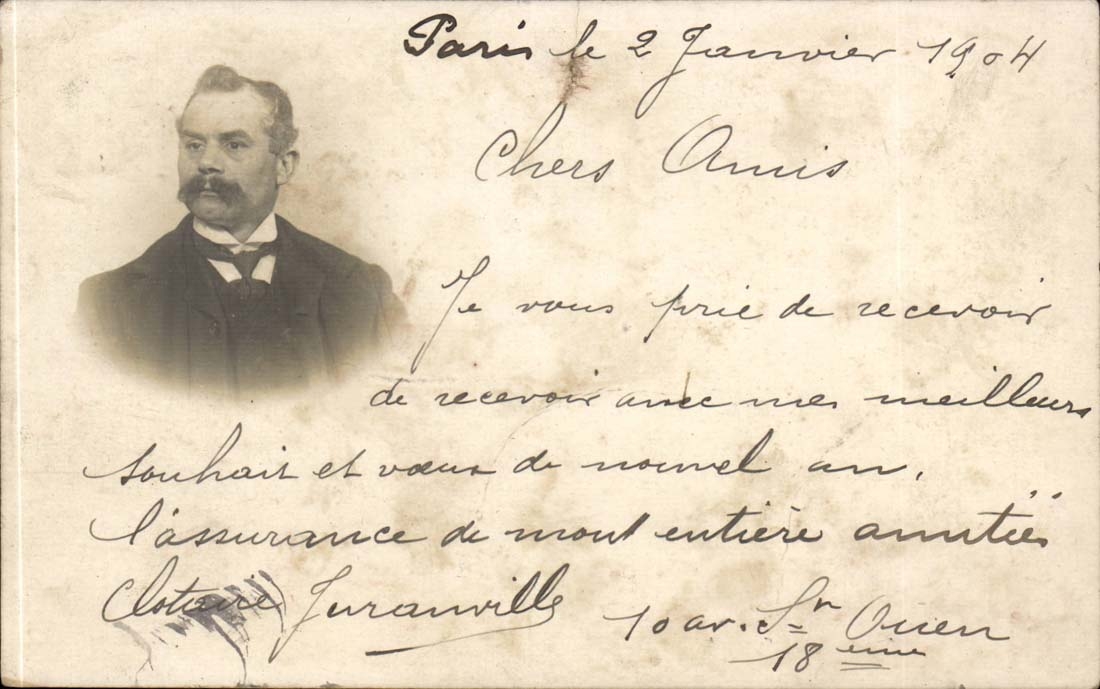 Paris le 2 Janvier 1904
Chers Amis
Je vous prie de recevoir
de recevoir avec mes meilleurs
souhait et vœux de nouvel an,
l'assurance de mont entière amitiés
Clotaire Juranville
10 av. St Ouen
18 ème